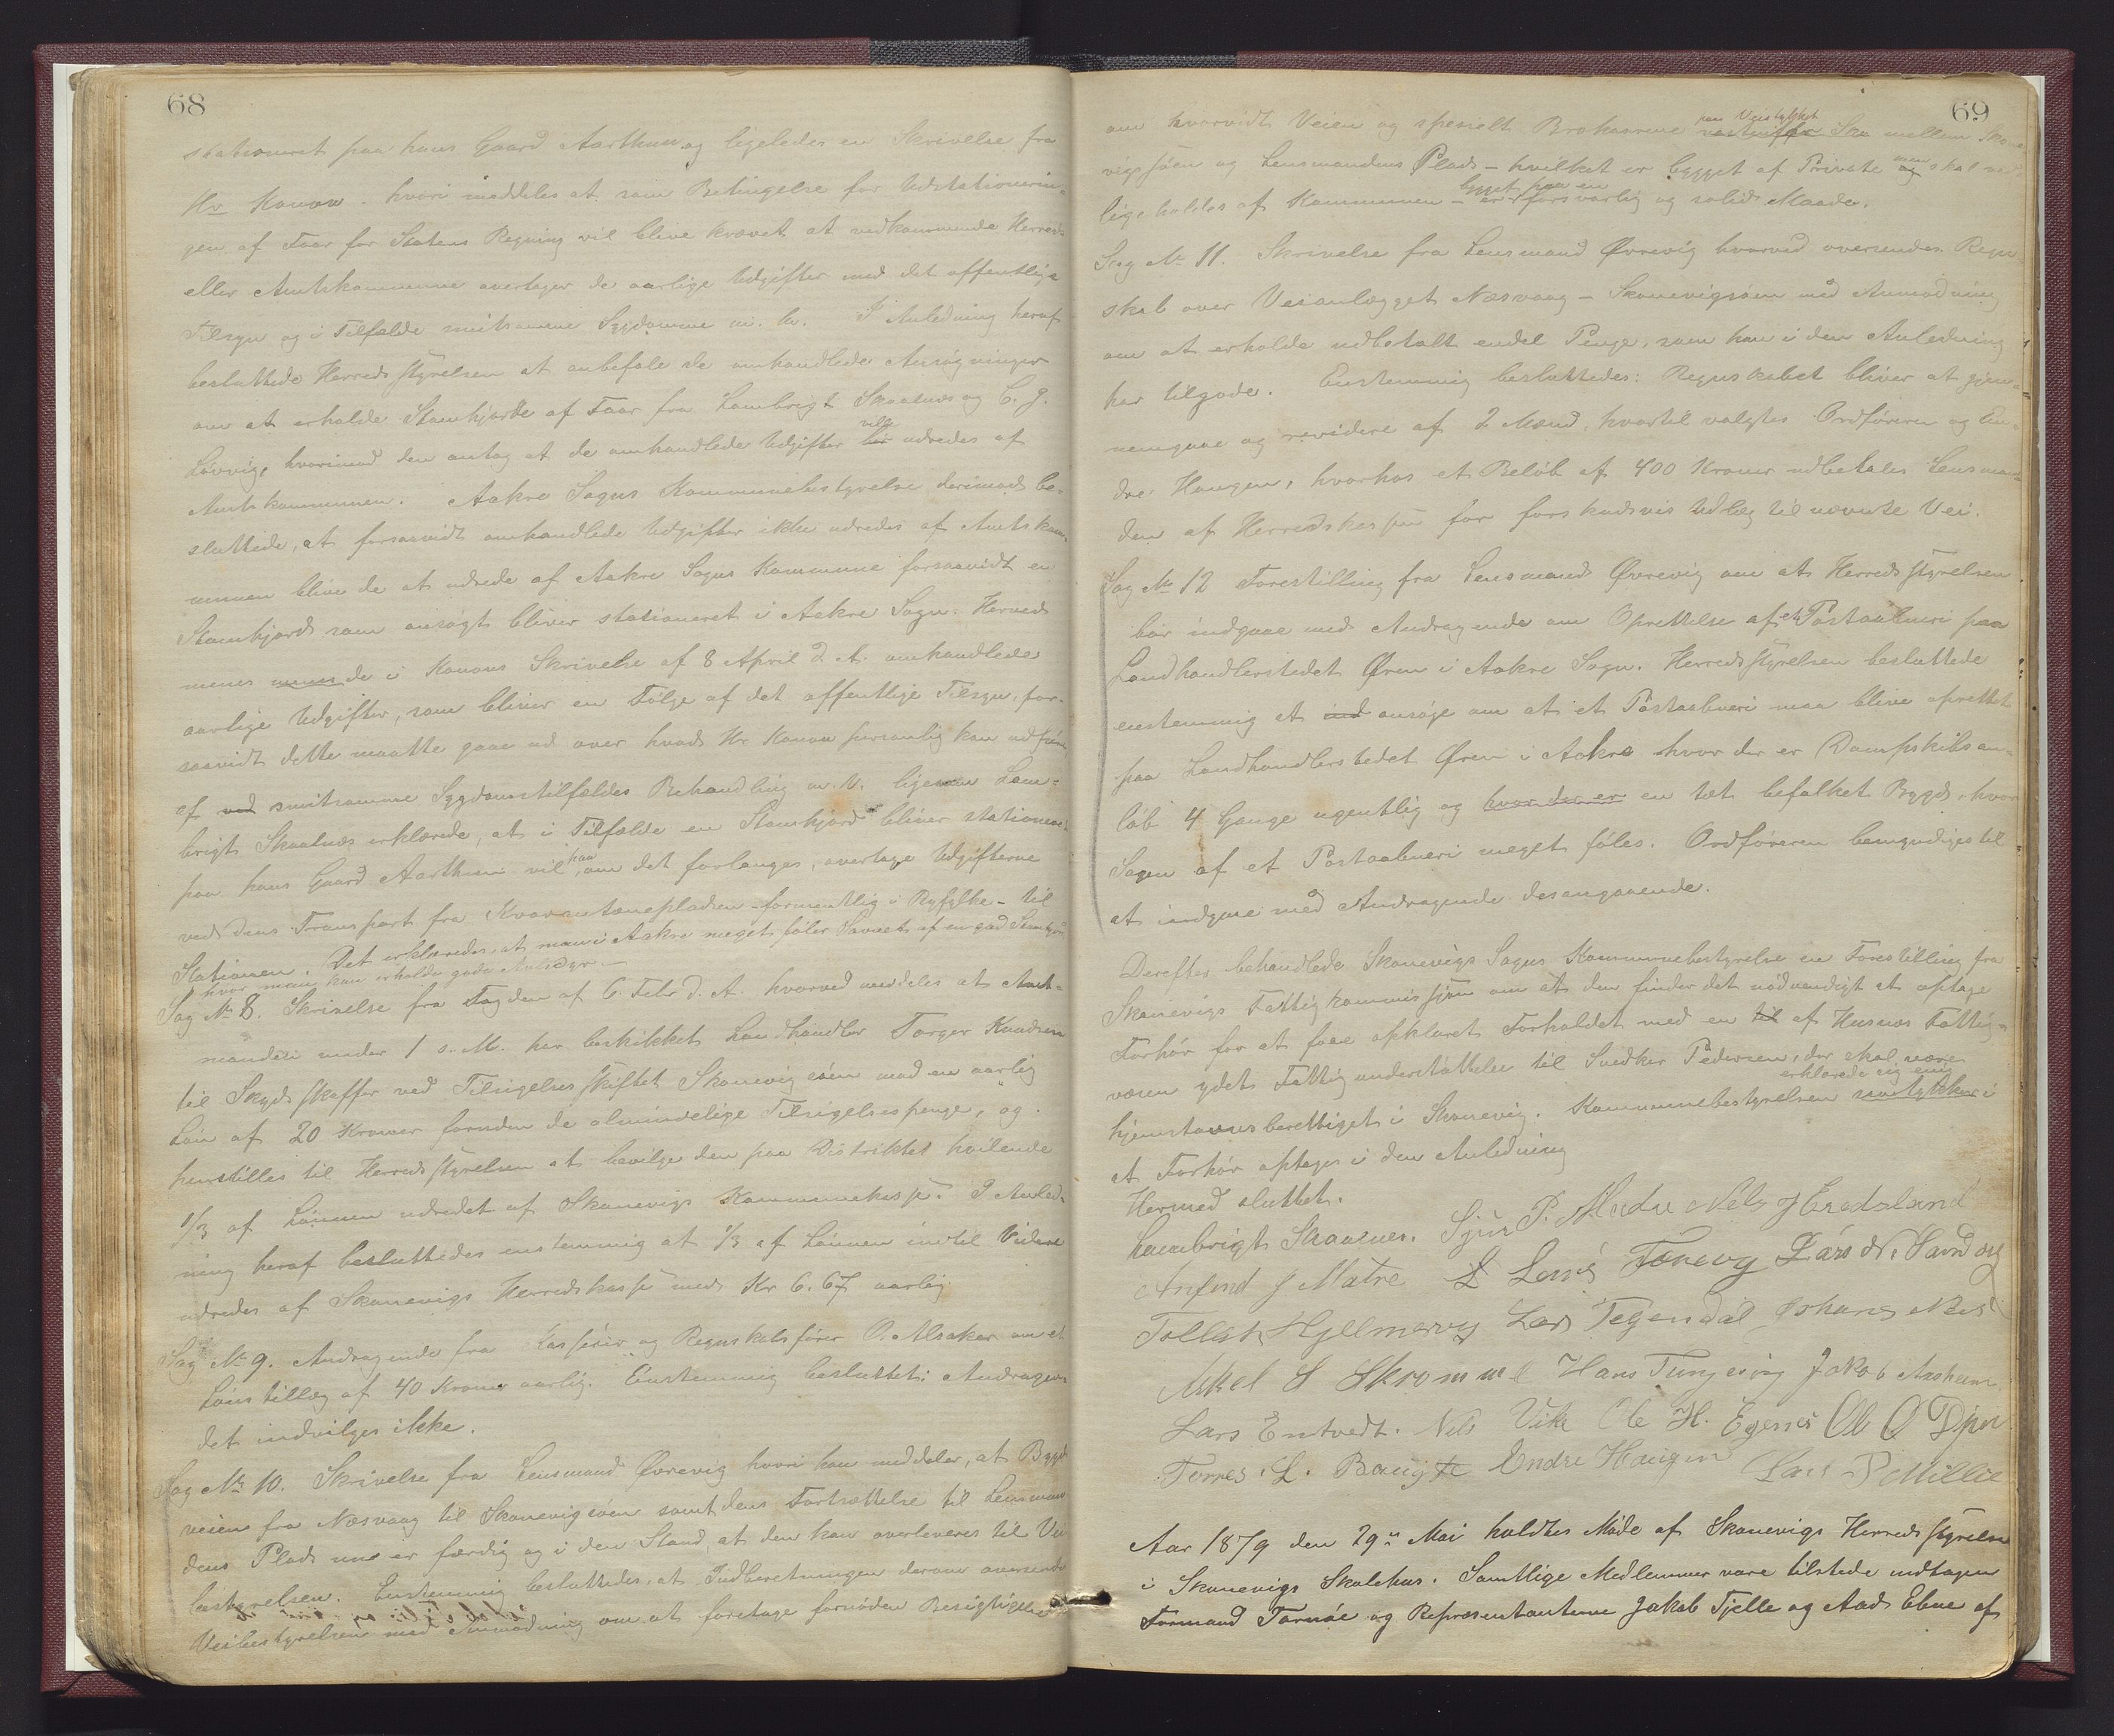 68
stationeret paa hans Gaard Aarthun og ligeledes en Skrivelse fra
Hr Konow - hvori meddeles at som Betingelse for Udstationerin-
gen af Faar for Statens Regning vil blive krævet at vedkommende Herreds-
eller Amtskommune overtager de aarlige Udgifter med det offentlige
Tilsyn og i Tilfælde smitsomme Sygdomme m. v. I Anledning heraf
besluttede Herredsstyrelsen at anbefale de omhandlede Ansøgninger
om at erholde Stamhjorde af Faar fra Lambrigt Skaalnes og C. J.
Løvvig, hvorimod den antog at de omhandlede Udgifter bør ville udredes af
Amtskommunen. Aakre Sogns Kommunebestyrelse derimod be-
sluttede, at forsaavidt omhandlede Udgifter ikke udredes af Amtskom-
munen blive de at udrede af Aakre Sogns Kommune forsaavidt en
Stamhjord som ansøgt bliver stationeret i Aakre Sogn. Herved
menes menes de i Konows Skrivelse af 8 April d. A. omhandlede
aarlige Udgifter, som bliver en Følge af det offentlige Tilsyn, for-
saavidt dette maatte gaae ud over hvad Hr Konow personlig kan udføre
af ved smitsomme Sygdomstilfældes Behandling m. V. ligesom Lam-
brigt Skaalnes erklærede, at i Tilfælde en Stamhjord bliver stationeret
paa hans Gaard Aarthun vil han, om det forlanges, overtage Udgifterne
ved dens Transport fra Kvarantænepladsen - formentlig i Ryfylke - til
Stationen. Det erklæredes, at man i Aakre meget føler Savnet af en god Stamhjord
hvor man kan erholde gode Avlsdyr. -
Sag No 8. Skrivelse fra Fogden af 6 Febr d. A. hvorved meddeles at Amt-
manden under 1 s. M. har beskikket Landhandler Torger Knudsen
til Skydsskaffer ved Tilsigelsesskiftet Skonevigsøen mod en aarlig
Løn af 20 Kroner foruden de almindelige Tilsigelsespenge, og
henstilles til Herredsstyrelsen at bevilge den paa Distriktet hvilende
1/3 af Lønnen udredet af Skonevigs Kommunekasse. I Anled-
ning heraf besluttedes enstemmig at 1/3 af Lønnen indtil Videre
udredes af Skonevigs Herredskasse med Kr 6.67 aarlig.
Sag No 9. Andragende fra Kasserer og Regnskabsfører O. Alsaker om et
Lønstillæg af 40 Kroner aarlig. Enstemmig besluttet: Andragen-
det indvilges ikke.
Sag No 10. Skrivelse fra Lensmand Øvrevig hvori han meddeler, at Bygde-
veien fra Næsvaag til Skonevigsøen samt dens Fortsættelse til Lensman-
dens Plads nu er færdig og i den Stand, at den kan overleveres til Vei-
bestyrelsen. Enstemmig besluttedes, at Indberetningen derom oversendes
Veibestyrelsen med Anmodning om at foretage fornøden Besigtigelse
69
om hvorvidt Veien og specielt Brokarrene paa Veistykket
vigsøen og Lensmandens Plads - hvilket er bygget af Private og men skal ved-
ligeholdes af Kommunen - er bygget paa en forsvarlig og solid Maade.
Sag No 11. Skrivelse fra Lensmand Øvrevig hvorved oversendes Regn-
skab over Veianlægget Næsvaag - Skonevigsøen med Anmodning
om at erholde udbetalt endel Penge, som han i den Anledning
har tilgode. Enstemmig besluttedes: Regnskabet bliver at gjen-
nemgaae og revidere af 2 Mænd, hvortil valgtes Ordføreren og En-
dre Haugen, hvorhos et Beløb af 400 Kroner udbetales Lensman-
den af Herredskassen for forskudsvis Udlæg til nævnte Vei.
Sag No 12 Forestilling fra Lensmand Øvrevig om at Herredsstyrelsen
bør indgaae med Andragende om Oprettelse af et Postaabneri paa
Landhandlerstedet Øren i Aakre Sogn. Herredsstyrelsen besluttede
enstemmig at ind ansøge om at et Postaabneri maa blive oprettet
paa Landhandlerstedet Øren i Aakre hvor der er Dampskibsan-
løb 4 Gange ugentlig og hvor der er en tæt befolket Bygd, hvor
Savn af et Postaabneri meget føles. Ordføreren bemyndiges til
at indgaae med Andragende desangaaende.
Derefter behandlede Skonevigs Sogns Kommunebestyrelse en Forestilling fra
Skonevigs Fattigkommission om at den finder det nødvendigt at optage
Forhør for at faae opklaret Forholdet med en til af Husnes Fattig-
væsen ydet Fattigunderstøttelse til Svedker Pedersen, der skal være
hjemstavnsberettiget i Skonevig. Kommunebestyrelsen samtykker erklærede sig enig i
at Forhør optages i den Anledning
Hermed sluttet.
Lambrigt Skaalnes. Sjur P. Milde Nels J Eredsland
Anfind J Matre L Larsen Tonevg Lars N. Sandvig
Tollak Hjellmervg Lars Tegendal Johans Nes
Mikel S Skromme Hans Tungesvig Jakob Aasheim
Lars Emtvedt. Nils Vika Ole H. Egenes Ole O
Torres L. Baugste Endre Haugen Lars P Millie
Aar 1879 den 29de Mai holdtes Møde af Skonevigs Herredsstyrelse
i Skonevigs Skolehus. Samtlige Medlemmer vare tilstede undtagen
Formand Tornøe og Repræsentanterne Jakob Fjelle og Aad Ebne af